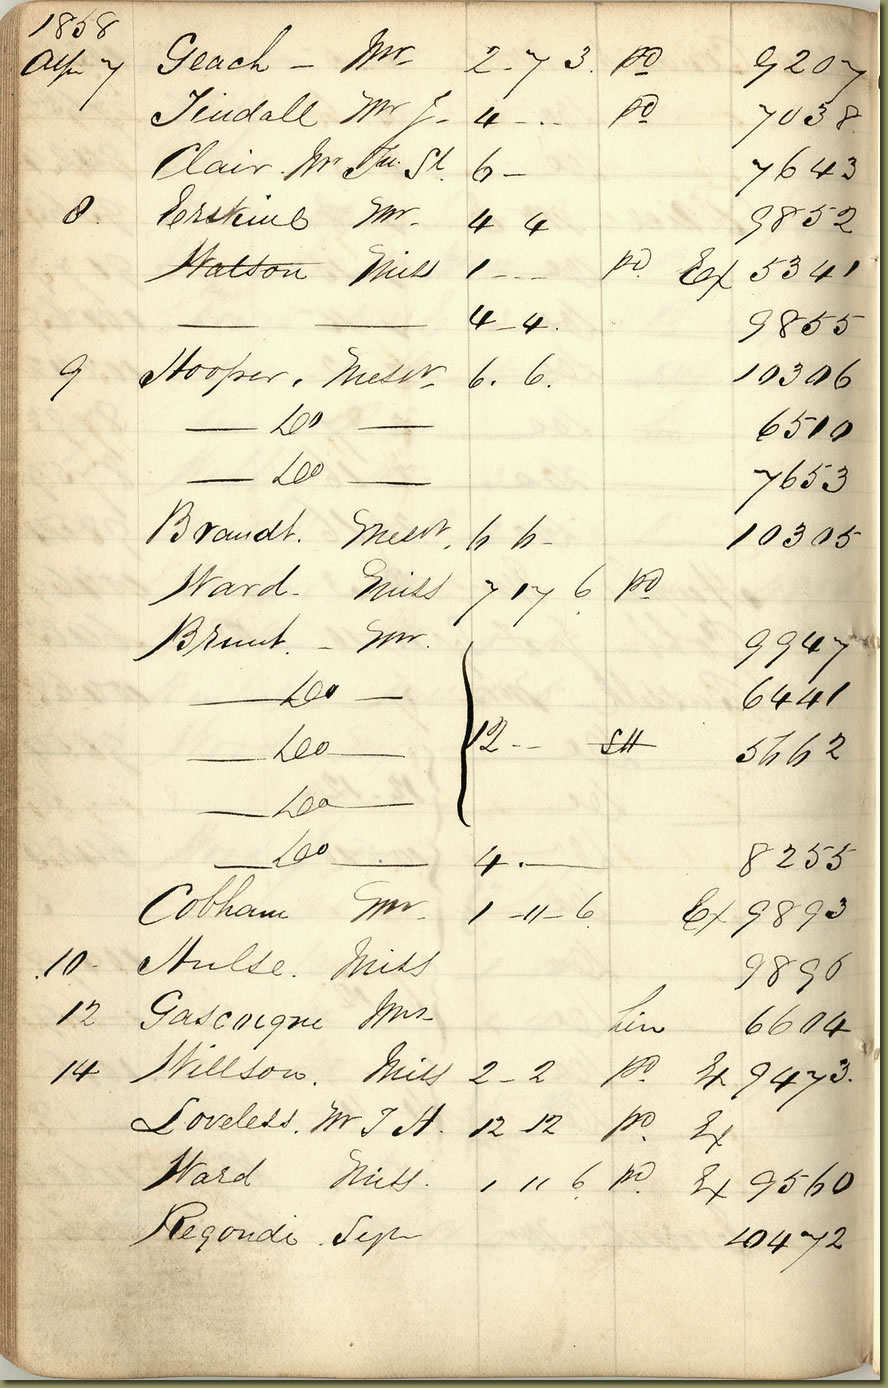 1858
Apr 7 Geach - Mr 2-7 3. pd 9207
Tindall Mr J- 4 - .. pd 7038
Clair. Mr 6 - 7643
8. Erskine Mr. 4 4 9852
Watson Miss 1 - - - pd Ex 5341
—— —— 4-4. 9855
9 Hooper. Messrs 6. 6. 10306
—— Do —— 6510
—— Do —— 7653
Brandt. Messrs. 6 6- 10305
Ward. Miss 7 17 6 pd
Brunt. - Mr. 9947
—— Do —— 6441
—— Do —— 12 - - SH 5662
—— Do ——
—— Do —— 4. —— 8255
Cobham Mr. 1 -11-6 Ex 9893
10- Hulse. Miss 9896
12 Gascoigne Mrs 6604
14 Willson. Miss 2-2 pd. Ex 9473.
Loveless. Mr T H. 12 12 pd. Ex
Ward Miss. 1 11 6 pd. Ex 9560
Regondi Sigr 10472